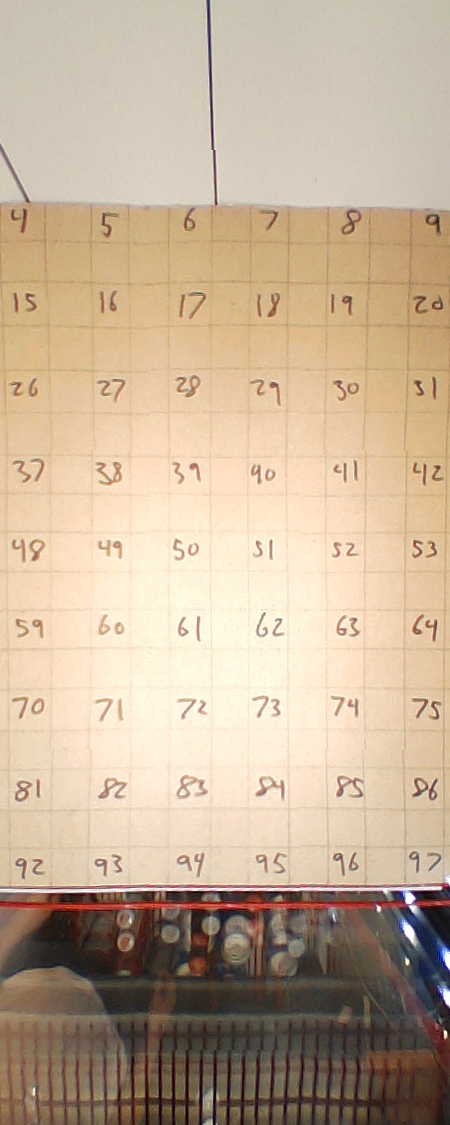 4 5 6 7 8 9
15 16 17 18 19 20
26 27 28 29 30 31
37 38 39 40 41 42
48 49 50 51 52 53
59 60 61 62 63 64
70 71 72 73 74 75
81 82 83 84 85 86
92 93 94 95 96 97